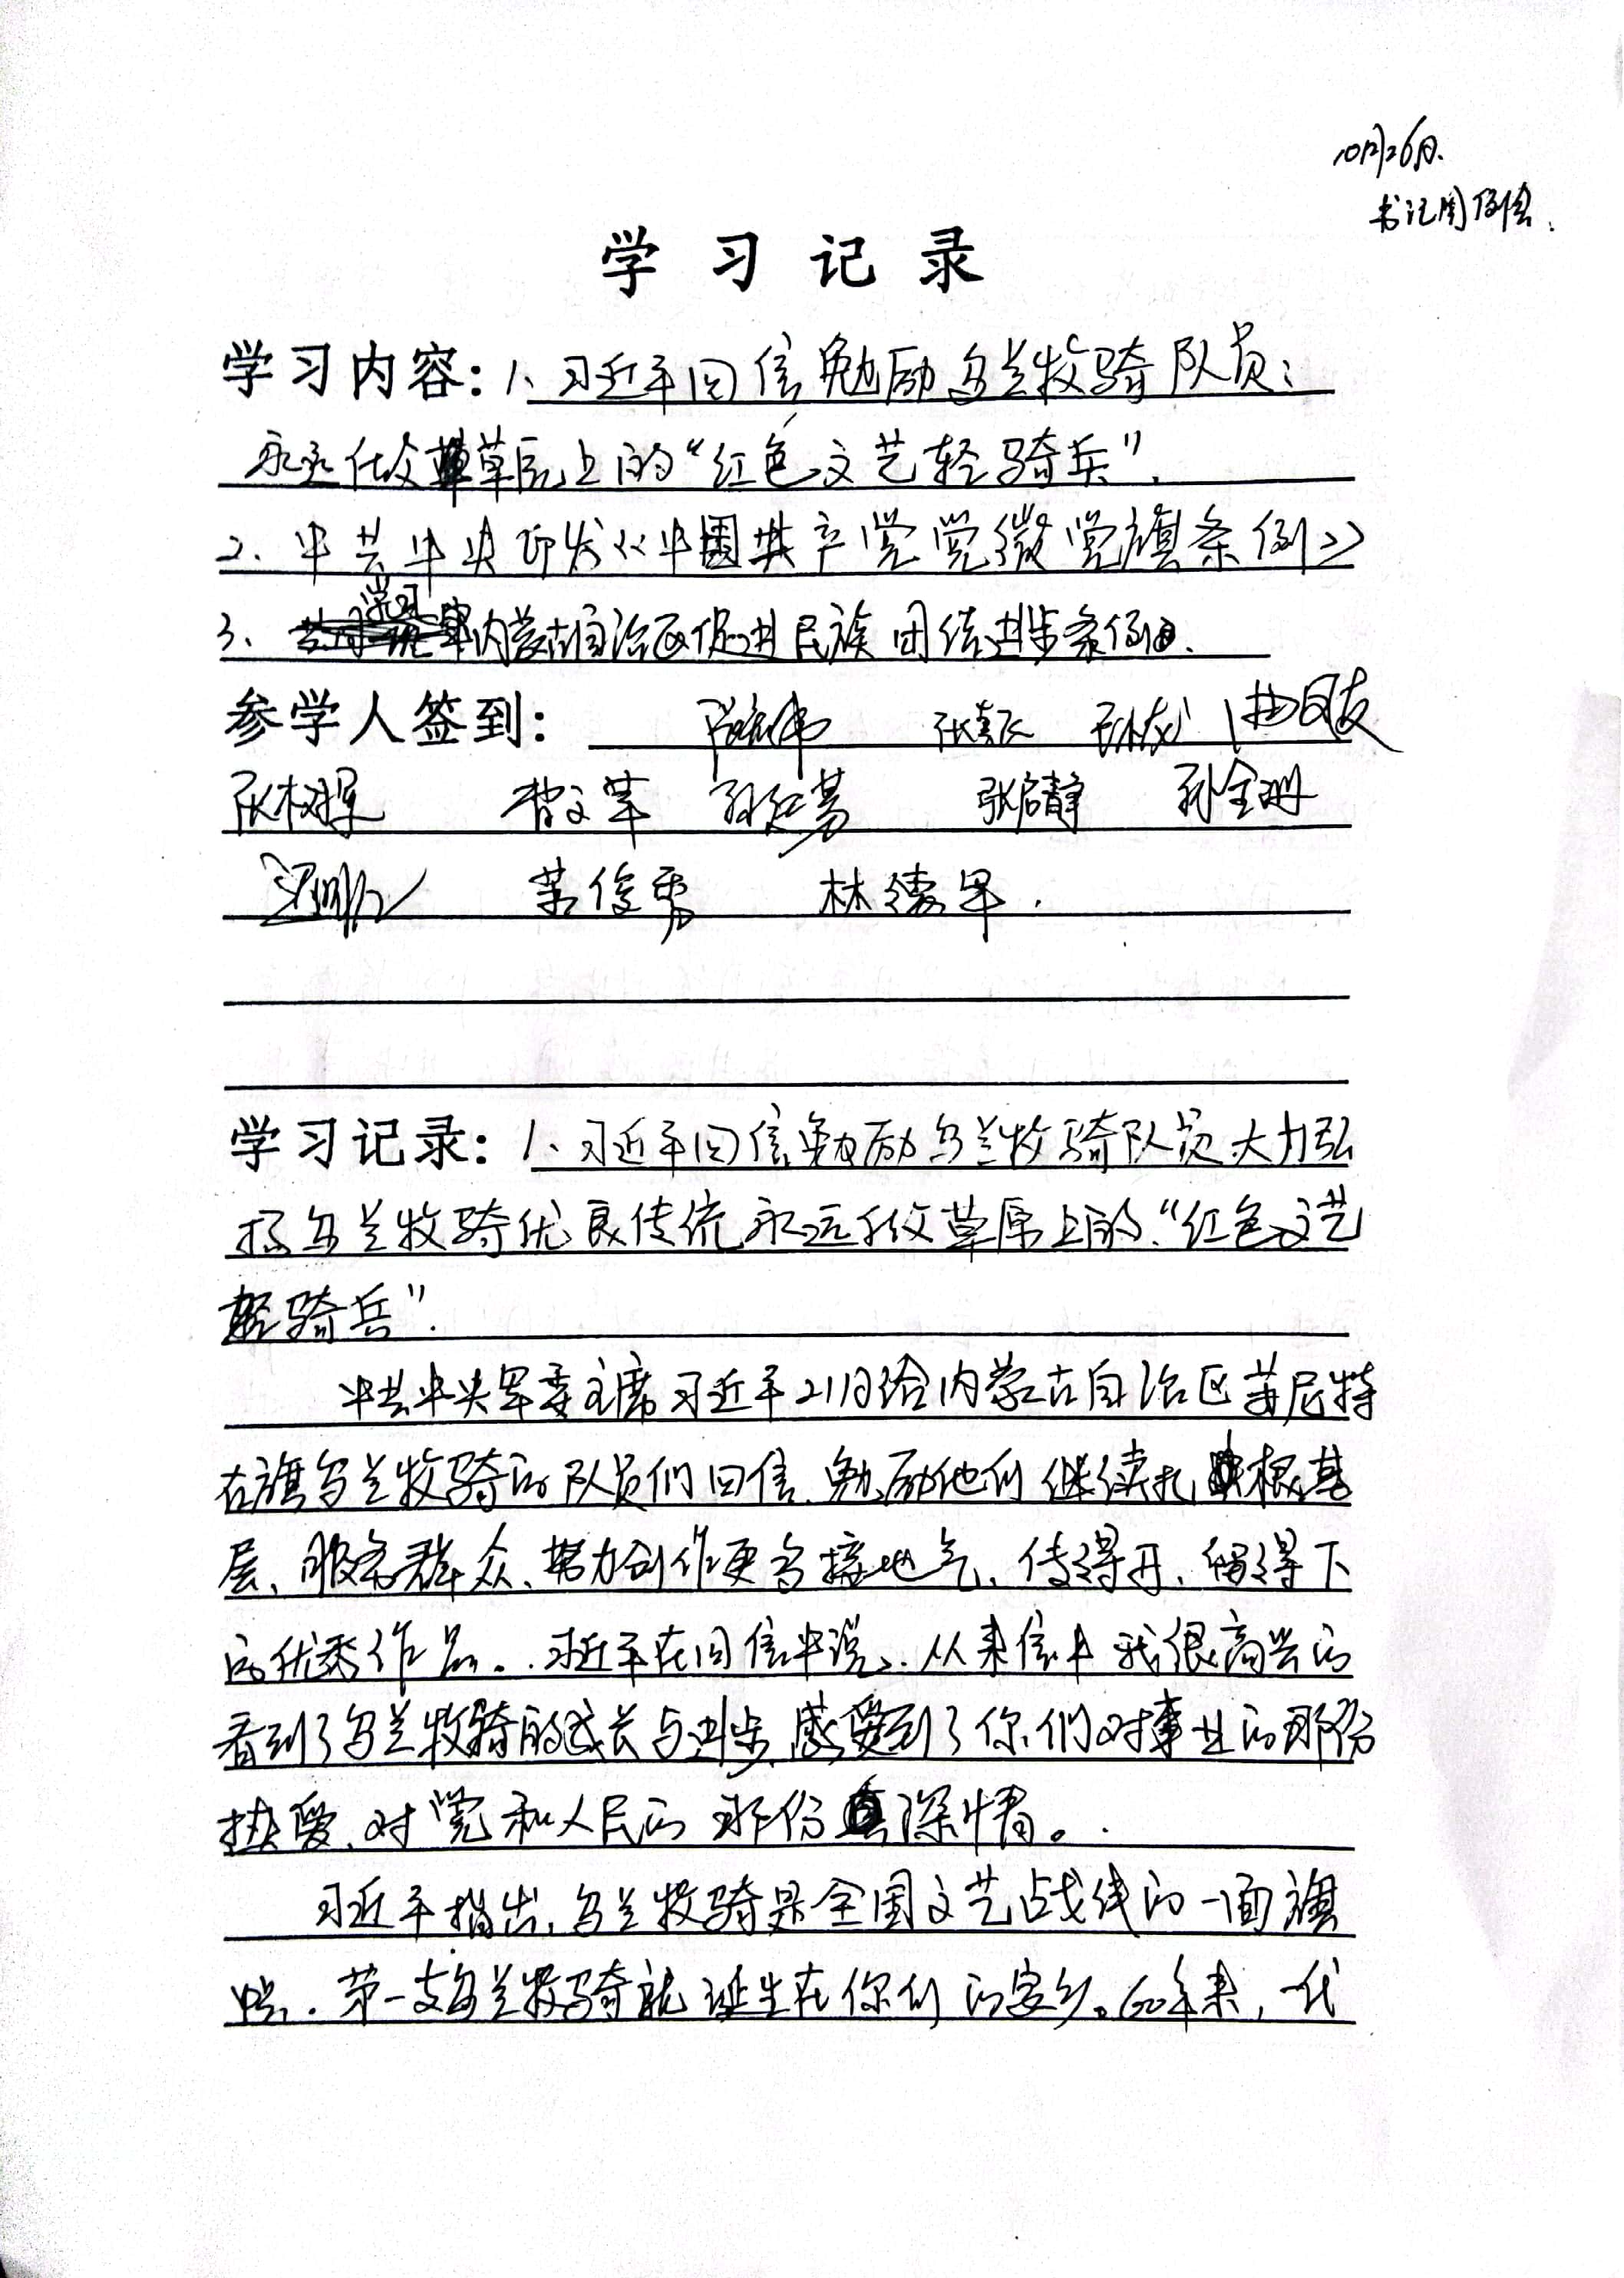 10月26日.
书记周例会.
学习记录
学习内容: 1、习近平回信勉励乌兰牧骑队员:
永远做草原上的“红色文艺轻骑兵”.
2、中共中央印发《中国共产党党徽党旗条例》
3、学习内蒙古自治区促进民族团结进步条例.
参学人签到:
张树军 曹文革 张启静 孙全珊
林德军.
学习记录: 1、习近平回信勉励乌兰牧骑队员大力弘
扬乌兰牧骑优良传统 永远做草原上的“红色文艺
轻骑兵”.
中共中央军委主席习近平21日给内蒙古自治区苏尼特
右旗乌兰牧骑的队员们回信、勉励他们继续扎根基
层、服务群众、努力创作更多接地气、传得开、留得下
的优秀作品。习近平在回信中说、从来信中我很高兴的
看到了乌兰牧骑的成长与进步,感受到了你们对事业的那份
热爱、对党和人民的那份深情。
习近平指出,乌兰牧骑是全国文艺战线的一面旗
帜.第一支乌兰牧骑就诞生在你们的家乡。60年来,一代